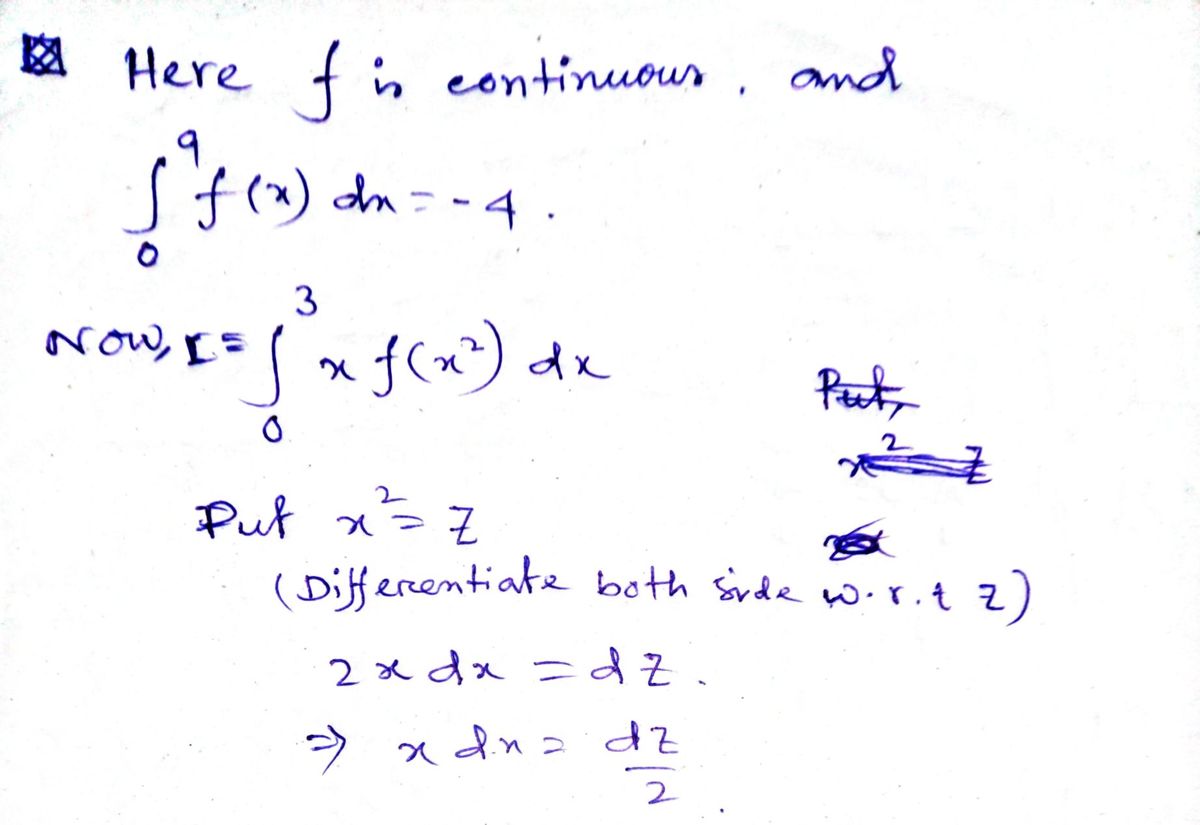 Here f is continuous, and
∫₀⁹ f(x) dx = -4.
Now, I = ∫₀³ x f(x²) dx
Put,
x² = z
Put x² = z
(Differentiate both side w.r.t z)
2x dx = dz.
⇒ x dx = dz/2.